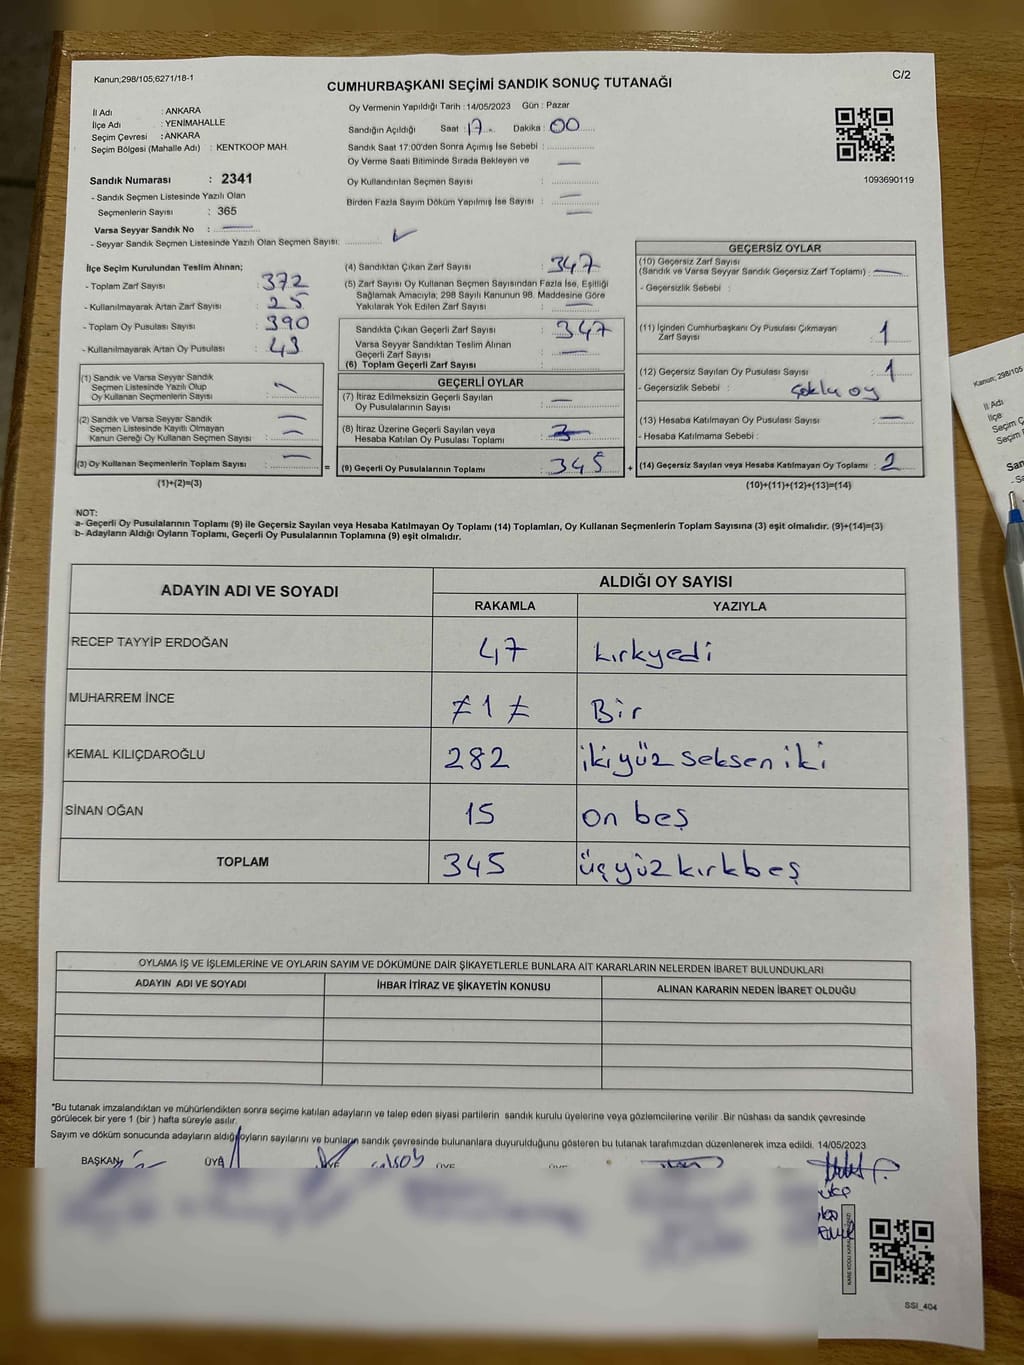 Kanun;298/105;6271/18-1
C/2
CUMHURBAŞKANI SEÇİMİ SANDIK SONUÇ TUTANAĞI
İl Adı : ANKARA
İlçe Adı : YENİMAHALLE
Seçim Çevresi : ANKARA
Seçim Bölgesi (Mahalle Adı) : KENTKOOP MAH.
Sandık Numarası : 2341
- Sandık Seçmen Listesinde Yazılı Olan
Seçmenlerin Sayısı : 365
Varsa Seyyar Sandık No :
- Seyyar Sandık Seçmen Listesinde Yazılı Olan Seçmen Sayısı:
Oy Vermenin Yapıldığı Tarih : 14/05/2023 Gün : Pazar
Sandığın Açıldığı Saat : 17 Dakika : 00
Sandık Saat 17.00'den Sonra Açımış İse Sebebi :
Oy Verme Saati Bitiminde Sırada Bekleyen ve
Oy Kullandırılan Seçmen Sayısı :
Birden Fazla Sayım Döküm Yapılmış İse Sayısı :
1093690119
İlçe Seçim Kurulundan Teslim Alınan;
- Toplam Zarf Sayısı : 372
- Kullanılmayarak Artan Zarf Sayısı : 25
- Toplam Oy Pusulası Sayısı : 390
- Kullanılmayarak Artan Oy Pusulası : 43
(1) Sandık ve Varsa Seyyar Sandık
Seçmen Listesinde Yazılı Olup
Oy Kullanan Seçmenlerin Sayısı :
(2) Sandık ve Varsa Seyyar Sandık
Seçmen Listesinde Kayıtlı Olmayan
Kanun Gereği Oy Kullanan Seçmen Sayısı :
(3) Oy Kullanan Seçmenlerin Toplam Sayısı :
(1)+(2)=(3)
=
(4) Sandıktan Çıkan Zarf Sayısı : 347
(5) Zarf Sayısı Oy Kullanan Seçmen Sayısından Fazla İse, Eşitliği
Sağlamak Amacıyla; 298 Sayılı Kanunun 98. Maddesine Göre
Yakılarak Yok Edilen Zarf Sayısı :
Sandıkta Çıkan Geçerli Zarf Sayısı : 347
Varsa Seyyar Sandıktan Teslim Alınan
Geçerli Zarf Sayısı :
(6) Toplam Geçerli Zarf Sayısı :
GEÇERLİ OYLAR
(7) İtiraz Edilmeksizin Geçerli Sayılan
Oy Pusulalarının Sayısı :
(8) İtiraz Üzerine Geçerli Sayılan veya
Hesaba Katılan Oy Pusulası Toplamı :
(9) Geçerli Oy Pusulalarının Toplamı : 345
+
GEÇERSİZ OYLAR
(10) Geçersiz Zarf Sayısı
(Sandık ve Varsa Seyyar Sandık Geçersiz Zarf Toplamı) :
- Geçersizlik Sebebi :
(11) İçinden Cumhurbaşkanı Oy Pusulası Çıkmayan
Zarf Sayısı : 1
(12) Geçersiz Sayılan Oy Pusulası Sayısı : 1
- Geçersizlik Sebebi : Çoklu oy
(13) Hesaba Katılmayan Oy Pusulası Sayısı :
- Hesaba Katılmama Sebebi :
(14) Geçersiz Sayılan veya Hesaba Katılmayan Oy Toplamı : 2
(10)+(11)+(12)+(13)=(14)
NOT:
a- Geçerli Oy Pusulalarının Toplamı (9) ile Geçersiz Sayılan veya Hesaba Katılmayan Oy Toplamı (14) Toplamları, Oy Kullanan Seçmenlerin Toplam Sayısına (3) eşit olmalıdır. (9)+(14)=(3)
b- Adayların Aldığı Oyların Toplamı, Geçerli Oy Pusulalarının Toplamına (9) eşit olmalıdır.
ADAYIN ADI VE SOYADI ALDIĞI OY SAYISI
RAKAMLA YAZIYLA
RECEP TAYYİP ERDOĞAN 47 kırkyedi
MUHARREM İNCE ≠ 1 ≠ Bir
KEMAL KILIÇDAROĞLU 282 ikiyüz seksen iki
SİNAN OĞAN 15 on beş
TOPLAM 345 üçyüzkırkbeş
OYLAMA İŞ VE İŞLEMLERİNE VE OYLARIN SAYIM VE DÖKÜMÜNE DAİR ŞİKAYETLERLE BUNLARA AİT KARARLARIN NELERDEN İBARET BULUNDUKLARI
ADAYIN ADI VE SOYADI İHBAR İTİRAZ VE ŞİKAYETİN KONUSU ALINAN KARARIN NEDEN İBARET OLDUĞU
*Bu tutanak imzalandıktan ve mühürlendikten sonra seçime katılan adayların ve talep eden siyasi partilerin sandık kurulu üyelerine veya gözlemcilerine verilir .Bir nüshası da sandık çevresinde
görülecek bir yere 1 (bir ) hafta süreyle asılır.
Sayım ve döküm sonucunda adayların aldığı oyların sayılarını ve bunların sandık çevresinde bulunanlara duyurulduğunu gösteren bu tutanak tarafımızdan düzenlenerek imza edildi. 14/05/2023
BAŞKAN ÜYE
SSI_404
Kanun; 298/105
İl Adı
İlçe